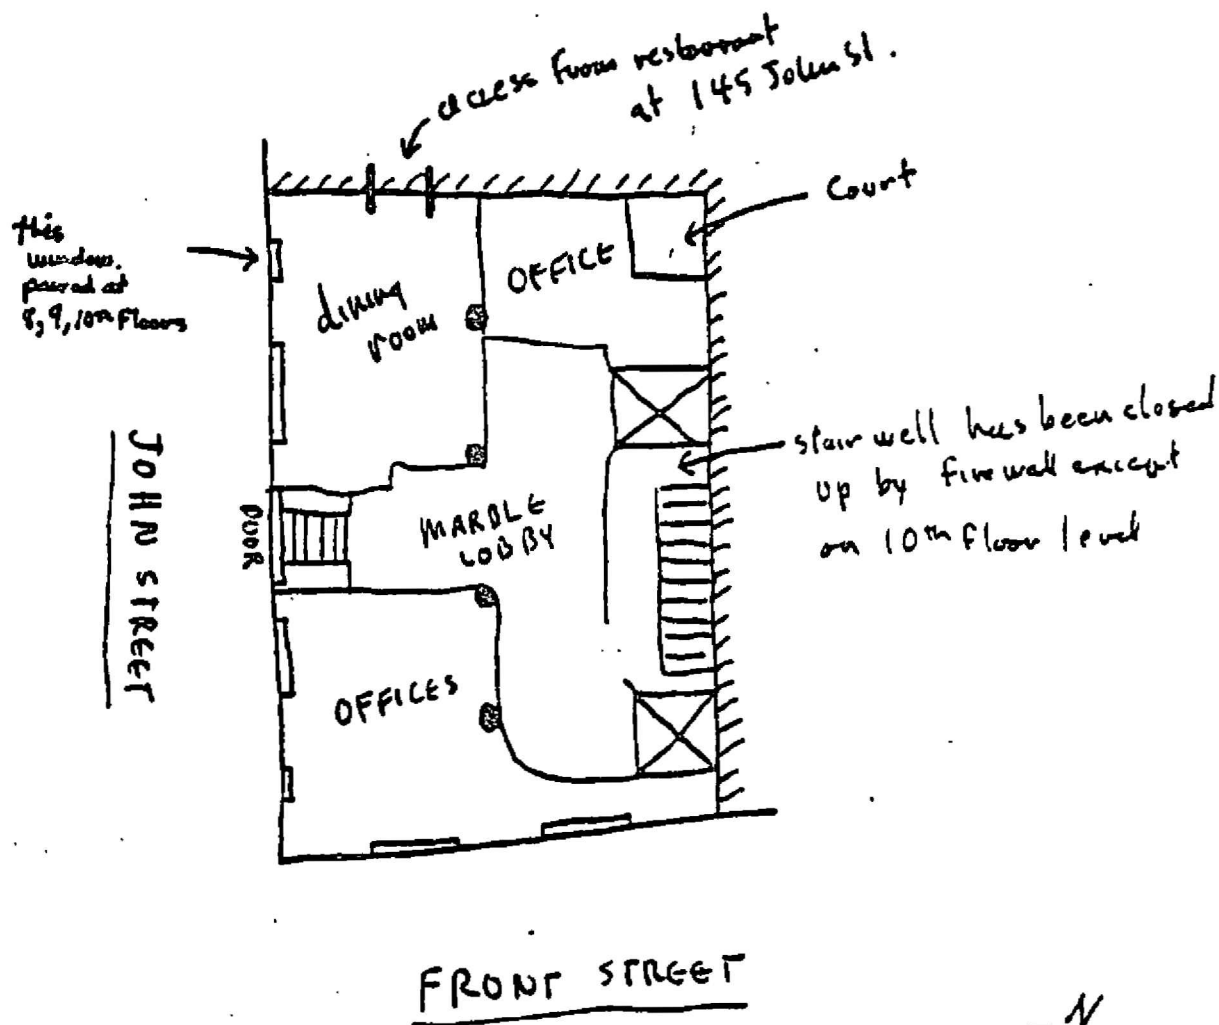 access from restaurant
at 145 John St.
Court
this
window
paired at
8, 9, 10th Floors
OFFICE
dining
room
stairwell has been closed
up by firewall except
on 10th Floor level
JOHN STREET
DOOR
MARBLE
LOBBY
OFFICES
FRONT STREET
N